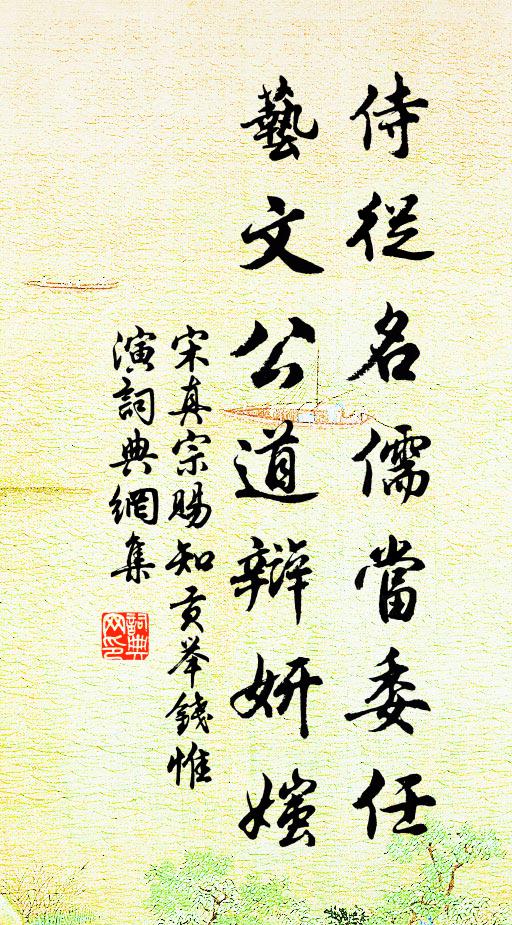 侍從名儒當委任
藝文公道辯妍媸
宋真宗賜知貢举錢惟
演詞典網集
詞典
网印